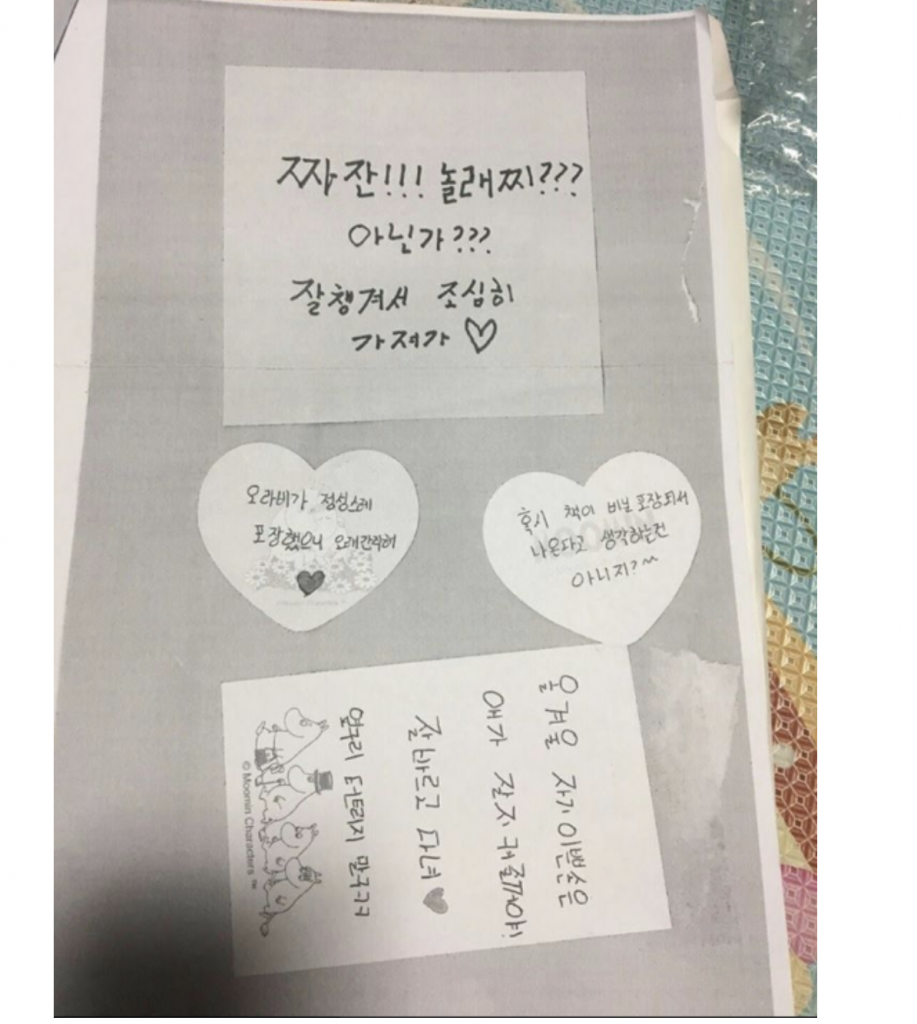 짜잔!!! 놀래찌???
아닌가???
잘챙겨서 조심히
가져가♡
오라비가 정성스레
포장했으니 오래간직해
♥
혹시 책이 비닐포장되서
나온다고 생각하는건
아니지?^^
올겨울 자기이쁜손은
얘가 잘지켜줄꺼야!
잘바르고 다녀♥
얼구리 터트리지 말구ㄱㄱ
© Moomin Characters ™